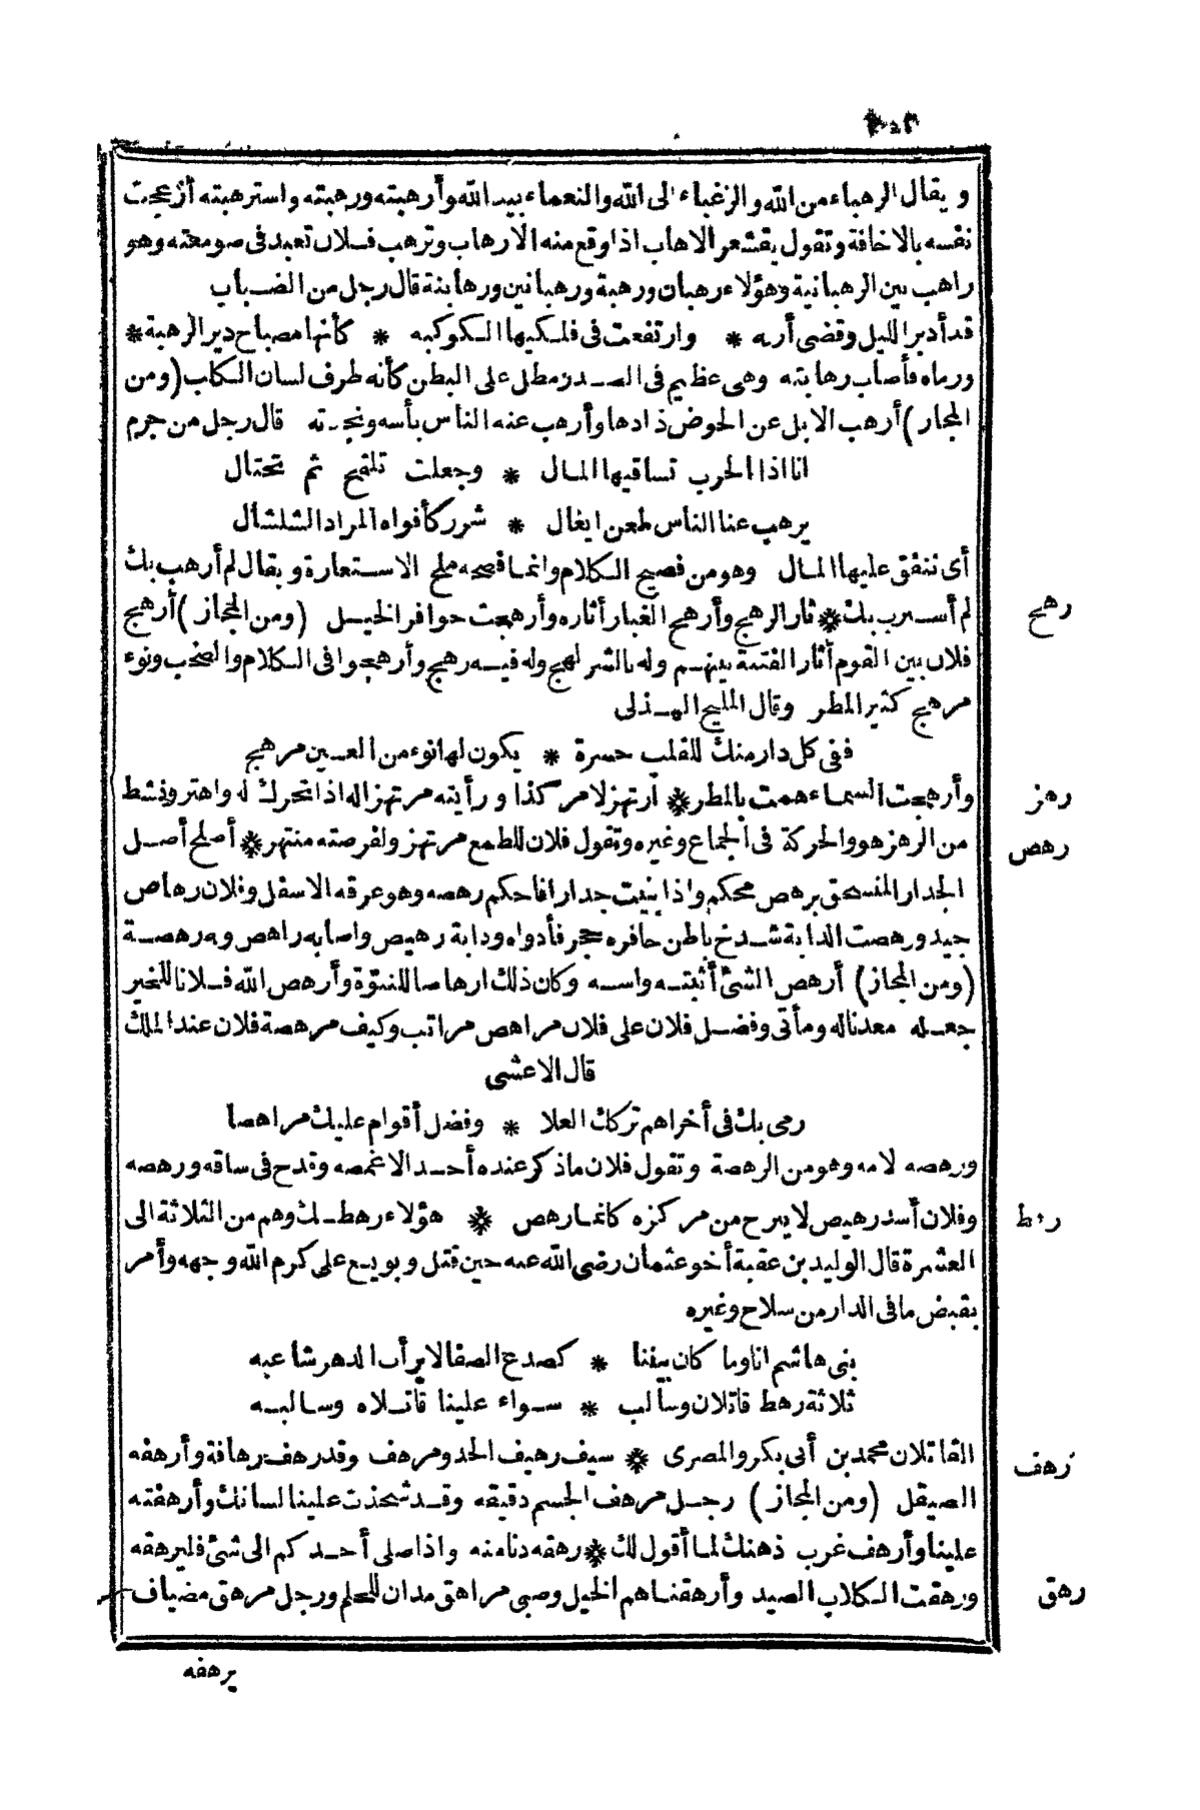 ويقال الرهباء من الله والرغباء الى الله والنعماء بيد الله وأرهبته ورهبته واسترهبته أزعجت
نفسه بالاخافة وتقول يقشعر الاهاب اذا وقع منه الارهاب وترهب فلان تعبد فى صومعته وهو
راهب بين الرهبانية وهؤلاء رهبان ورهبة ورهبانين ورهابنة قال رجل من الضباب
قد أدبر الليل وقضى أربه * وارتفعت فى فلكيها الكوكبه * كأنها مصباح دير الرهبة *
ورماه فأصاب رهابته وهى عظيم فى الصدر مطل على البطن كأنه طرف لسان الكلب (ومن
المجاز) أرهب الابل عن الحوض ذادها وأرهب عنه الناس بأسه ونجدته قال رجل من جرم
انا اذا الحرب تساقيها المال * وجعلت تلقح ثم تحتال
يرهب عنا الناس طعن ايغال * شزر كأفواه المزاد الشلشال
أى ننفق عليها المال وهو من فصيح الكلام وانما فصحه ملح الاستعارة ويقال لم أرهب بك
لم أسترب بك * ثار الرهج وأرهج الغبار أثاره وأرهجت حوافر الخيل (ومن المجاز) أرهج
رهج
فلان بين القوم أثار الفتنة بينهم وله بالشر لهج وله فيه رهج وأرهجوا فى الكلام والصخب ونوء
مرهج كثير المطر وقال المليح الهذلى
ففى كل دار منك للقلب حسرة * يكون لها نوء من العين مرهج
وأرهجت السماء همت بالمطر * ارتهز لامر كذا ورأيته مرتهزا له اذا تحرك له واهتز ونشط
رهز
من الرهز هو والحركة فى الجماع وغيره وتقول فلان للطمع مرتهز ولفرصته منتهز * أصلح أصل
رهص
الجدار المنسحق برهص محكم واذا بنيت جدارا فاحكم رهصه وهو عرقه الاسفل وفلان رهاص
جيد ورهصت الدابة شدخ باطن حافره حجر فأدواه ودابة رهيص واصابه راهص وبه رهصة
(ومن المجاز) أرهص الشئ أثبته واسه وكان ذلك ارهاصا للنبوة وأرهص الله فلانا للخير
جعله معدنا له ومأتى وفضل فلان على فلان مراهص مراتب وكيف مرهصة فلان عند الملك
قال الاعشى
رمى بك فى أخراهم تركك العلا * وفضل أقوام عليك مراهصا
ورهصه لامه وهو من الرهصة وتقول فلان ما ذكر عنده أحد الا غمصه وقدح فى ساقه ورهصه
وفلان أسد رهيص لا يبرح من مركزه كانما رهص * هؤلاء رهطك وهم من الثلاثة الى
رهط
العشرة قال الوليد بن عقبة أخو عثمان رضى الله عنه حين قتل وبويع على كرم الله وجهه وأمر
بقبض ما فى الدار من سلاح وغيره
بنى هاشم انا وما كان بيننا * كصدع الصفا لا يرأب الدهر شاعبه
ثلاثة رهط قاتلان وسالب * سواء علينا قاتلاه وسالبه
القاتلان محمد بن أبى بكر والمصرى * سيف رهيف الحد ومرهف وقد رهف رهافة وأرهفه
رهف
الصيقل (ومن المجاز) رجل مرهف الجسم دقيقه وقد شحذت علينا لسانك وأرهفته
علينا وأرهف غرب ذهنك لما أقول لك * رهقه دنا منه واذا صلى أحدكم الى شئ فليرهقه
ورهقت الكلاب الصيد وأرهقناهم الخيل وصبى مراهق مدان للحلم ورجل مرهق مضياف
رهق
يرهقه